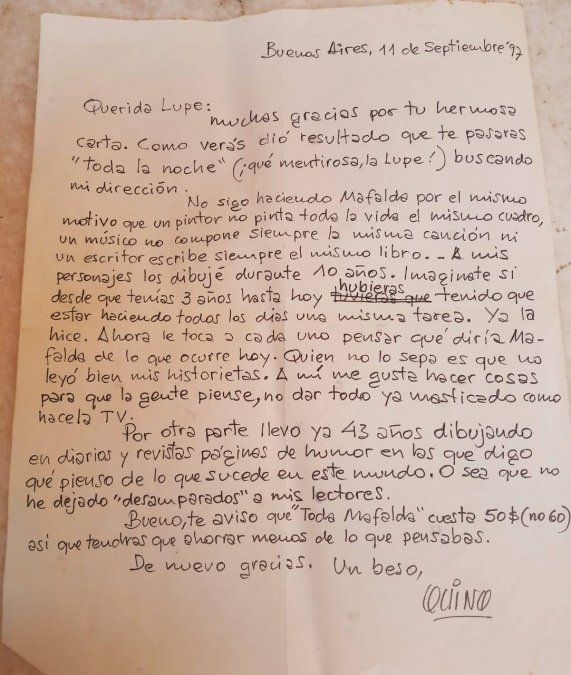 Buenos Aires, 11 de Septiembre '97
Querida Lupe:
muchas gracias por tu hermosa
carta. Como verás dió resultado que te pasaras
"toda la noche" (¡qué mentirosa, la Lupe!) buscando
mi dirección.
No sigo haciendo Mafalda por el mismo
motivo que un pintor no pinta toda la vida el mismo cuadro,
un músico no compone siempre la misma canción ni
un escritor escribe siempre el mismo libro. _ A mis
personajes los dibujé durante 10 años. Imaginate si
desde que tenías 3 años hasta hoy hubieras tuvieras que tenido que
estar haciendo todos los días una misma tarea. Ya la
hice. Ahora le toca a cada uno pensar qué diría Ma-
falda de lo que ocurre hoy. Quien no lo sepa es que no
leyó bien mis historietas. A mí me gusta hacer cosas
para que la gente piense, no dar todo ya masticado como
hace la TV.
Por otra parte llevo ya 43 años dibujando
en diarios y revistas páginas de humor en las que digo
qué pienso de lo que sucede en este mundo. O sea que no
he dejado "desamparados" a mis lectores.
Bueno, te aviso que "Toda Mafalda" cuesta 50$ (no 60)
asi que tendras que ahorrar menos de lo que pensabas.
De nuevo gracias. Un beso,
QUINO